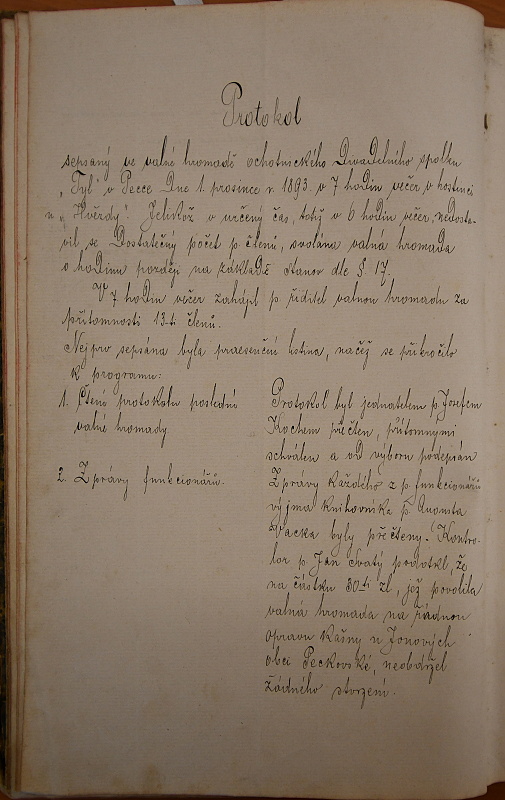 Protokol
sepsaný ve valné hromadě ochotnického Divadelního spolku
"Tyl" v Pecce Dne 1. prosince r. 1893. v 7 hodin večer v hostinci
u „Hvězdy". Jelikož v určený čas, totiž v 6 hodin večer, nedosta-
vil se Dostatečný počet p. členů, svolána valna hromada
o hodinu později na základě stanov dle §. 17.
V 7 hodin večer zahájil p. řiditel valnou hromadu za
přítomnosti 13-ti členů.
Nejprv sepsána byla praesenční listina, načež se přikročilo
k programu:
1. Čtení protokolu poslední
valné hromady
Protokol byl jednatelem p. Josefem
Kochem přečten, přítomnými
schválen a od výboru podepsán
2. Zprávy funkcionářů.
Zprávy každého z p. funkcionářů
vyjma knihovníka p. Augusta
Vacka byly přečteny. Kontro-
lor p. Jan Svatý podotkl, že
na částku 30-ti zl, jež povolila
valná hromada na řádnou
opravu kašny u Jonových
obci Peckovské, neobdržel
žádného stvrzení.